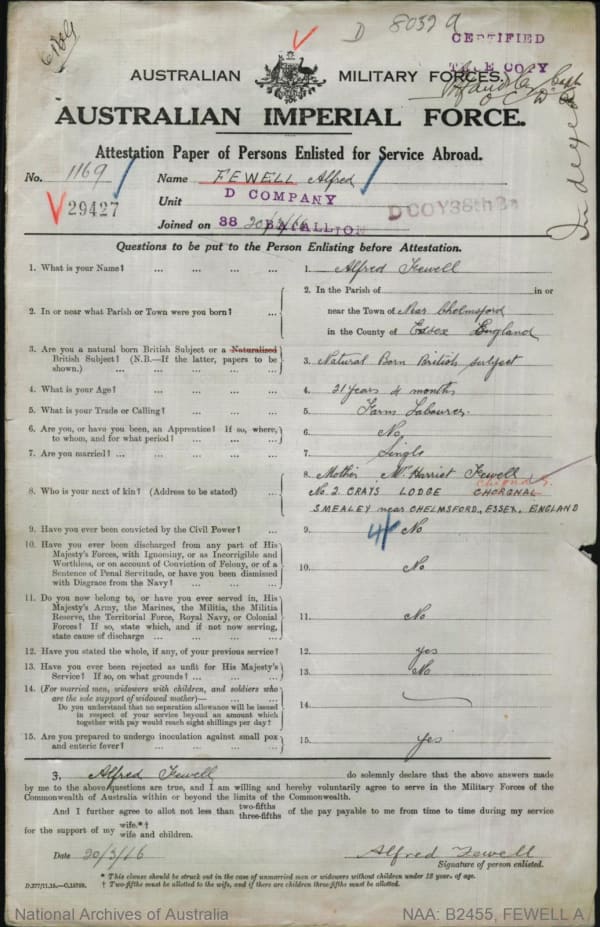 D 8039 A
CERTIFIED
TRUE COPY
AUSTRALIAN MILITARY FORCES.
AUSTRALIAN IMPERIAL FORCE.
Attestation Paper of Persons Enlisted for Service Abroad.
No. 1169 Name FEWELL Alfred
29427 Unit D COMPANY
D COY 38th Bn
Joined on 38 BATTALION 20/3/16
Indexed
Questions to be put to the Person Enlisting before Attestation.
1. What is your Name? ... ... ... ... 1. Alfred Fewell
2. In or near what Parish or Town were you born? ... 2. In the Parish of in or
near the Town of Near Chelmsford
in the County of Essex England
3. Are you a natural born British Subject or a Naturalized
British Subject? (N.B.—If the latter, papers to be
shown.) ... ... ... ... 3. Natural Born British subject
4. What is your Age? ... ... ... ... 4. 21 years 4 months
5. What is your Trade or Calling? ... ... ... 5. Farm Labourer
6. Are you, or have you been, an Apprentice? If so, where,
to whom, and for what period? ... ... ... 6. No
7. Are you married? ... ... ... ... 7. Single
8. Who is your next of kin? (Address to be stated) ... 8. Mother Mrs Harriet Fewell
No. 2. CRAYS LODGE CHORGNAL
SMEALEY near CHELMSFORD, ESSEX, ENGLAND
9. Have you ever been convicted by the Civil Power? ... 9. No
10. Have you ever been discharged from any part of His
Majesty's Forces, with Ignominy, or as Incorrigible and
Worthless, or on account of Conviction of Felony, or of a
Sentence of Penal Servitude, or have you been dismissed
with Disgrace from the Navy? ... ... ... 10. No
11. Do you now belong to, or have you ever served in, His
Majesty's Army, the Marines, the Militia, the Militia
Reserve, the Territorial Force, Royal Navy, or Colonial
Forces? If so, state which, and if not now serving,
state cause of discharge ... ... ... 11. No
12. Have you stated the whole, if any, of your previous service? 12. yes
13. Have you ever been rejected as unfit for His Majesty's
Service? If so, on what grounds? ... ... 13. No
14. (For married men, widowers with children, and soldiers who
are the sole support of widowed mother)—
Do you understand that no separation allowance will be issued
in respect of your service beyond an amount which
together with pay would reach eight shillings per day? 14.
15. Are you prepared to undergo inoculation against small pox
and enteric fever? ... ... ... ... 15. yes
I, Alfred Fewell do solemnly declare that the above answers made
by me to the above questions are true, and I am willing and hereby voluntarily agree to serve in the Military Forces of the
Commonwealth of Australia within or beyond the limits of the Commonwealth.
And I further agree to allot not less than two-fifths three-fifths of the pay payable to me from time to time during my service
for the support of my wife.*† wife and children.
Date 20/3/16 Alfred Fewell
Signature of person enlisted.
* This clause should be struck out in the case of unmarried men or widowers without children under 18 year. of age.
† Two-fifths must be allotted to the wife, and if there are children three-fifths must be allotted.
National Archives of Australia NAA: B2455, FEWELL A